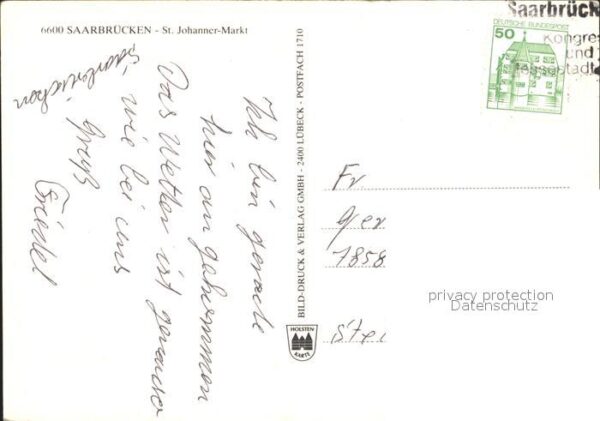 6600 SAARBRÜCKEN - St. Johanner-Markt
Ich bin gerade
hier angekommen
Das Wetter ist genauso
wie bei uns
Gruß
Saarbrücken
BILD-DRUCK & VERLAG GMBH - 2400 LÜBECK - POSTFACH 1710
HOLSTEN
KARTE
Saarbrück
Kongres
und
Messestadt
DEUTSCHE BUNDESPOST
50
Fr
Ger
7858
Stei
privacy protection
Datenschutz